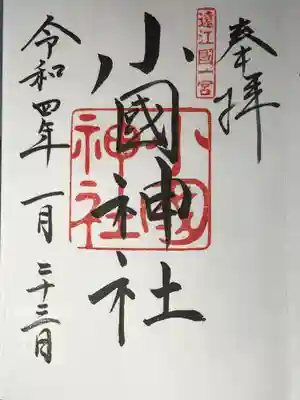 奉拝
遠江國一宮
小國神社
小國神社
令和四年 一月 二十三日